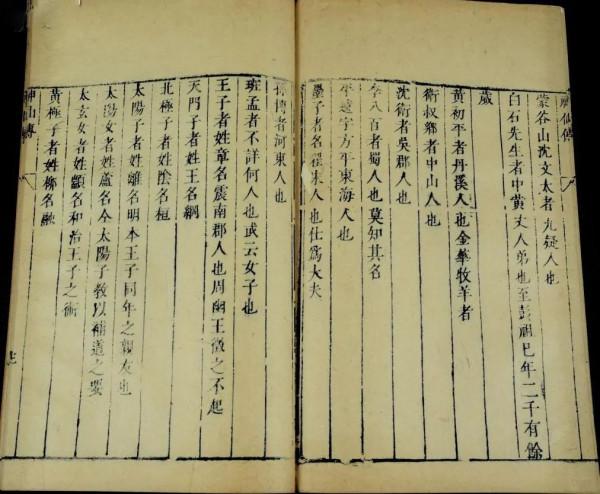 神仙傳
蒙谷山沈文太者九疑人也
白石先生者中黃丈人弟也至彭祖已年二千有餘
歲
黃初平者丹溪人也金華牧羊者
衛叔鄉者中山人也
沈衛者吳郡人也
李八百者蜀人也莫知其名
平遠字方平東海人也
墨子者名翟宋人也仕爲大夫
孫博者河東人也
班孟者不詳何人也或云女子也
王子者姓章名震南郡人也周幽王徵之不起
天門子者姓王名綱
北極子者姓陰名桓
太陽子者姓離名明本王子同年之親友也
太陽女者姓盧名今太陽子敎以補道之要
太玄女者姓顓名和治王子之術
黃極子者姓柳名融
神山傳